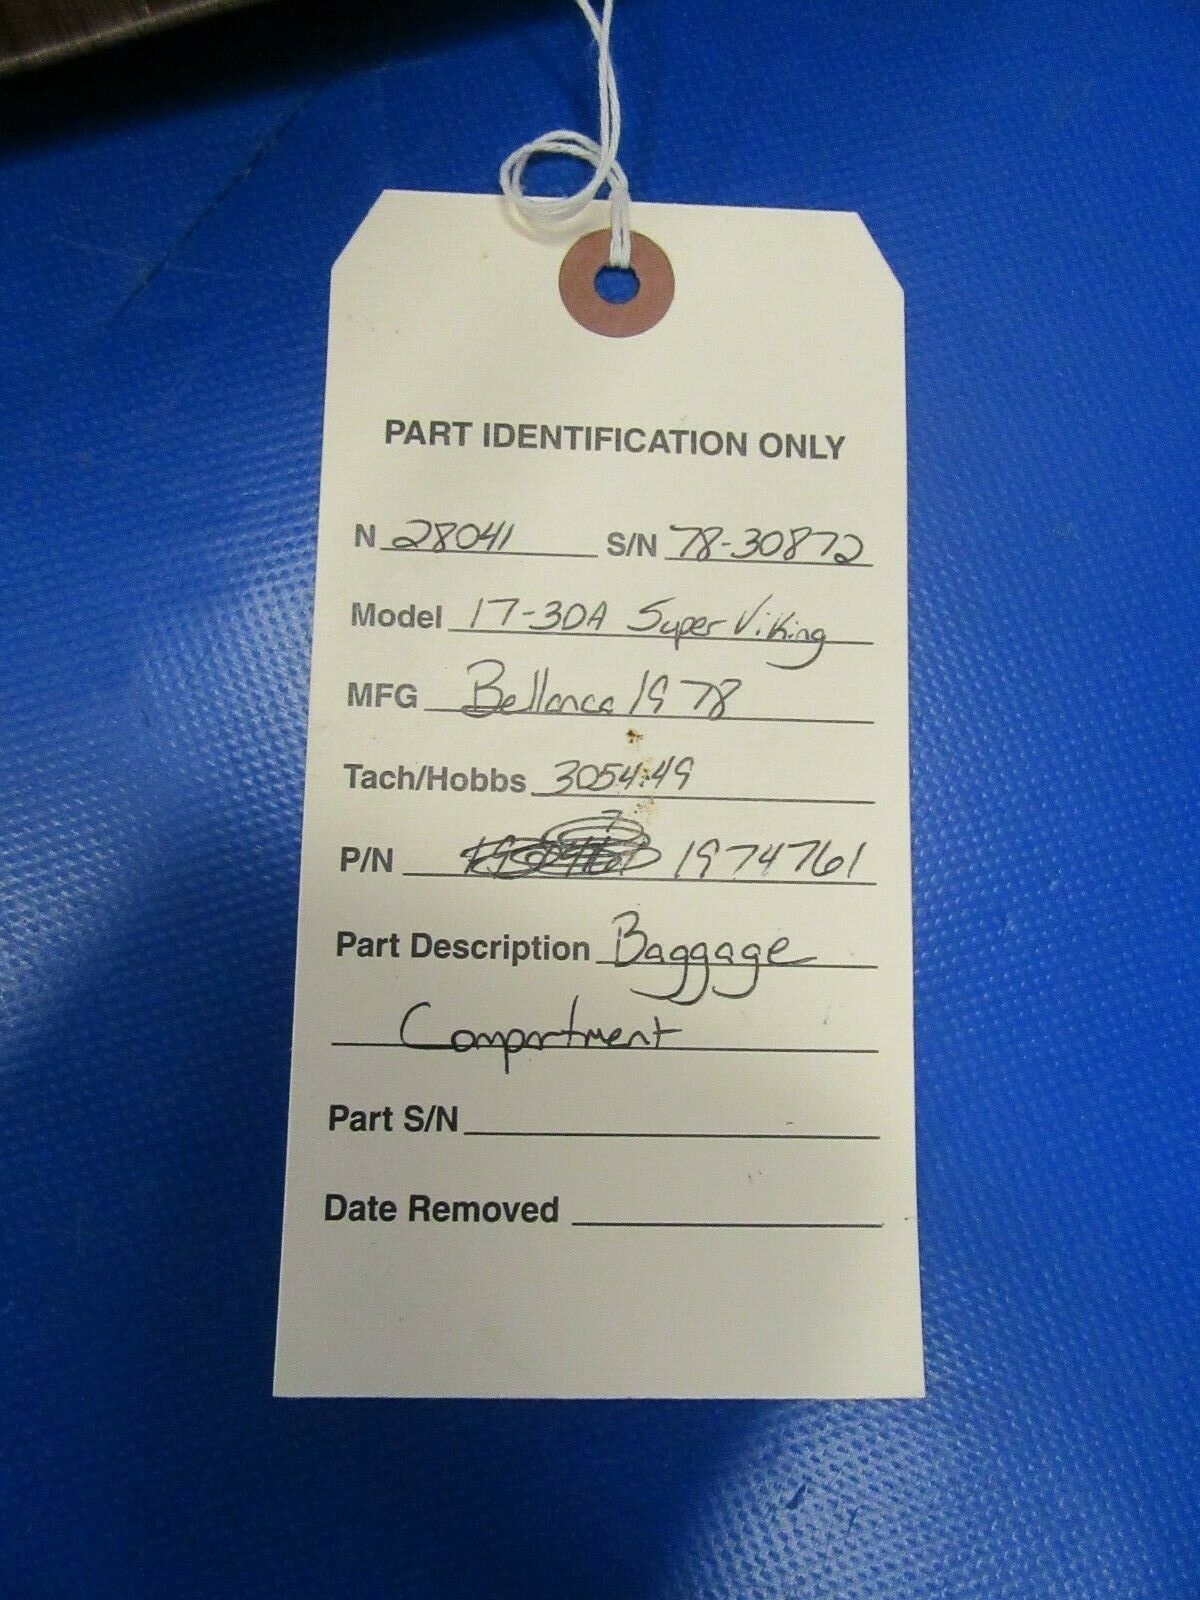 PART IDENTIFICATION ONLY
N 28041 S/N 78-30872
Model 17-30A Super Viking
MFG Bellanca 1978
Tach/Hobbs 3054.49
P/N 1974761
Part Description Baggage
Compartment
Part S/N
Date Removed